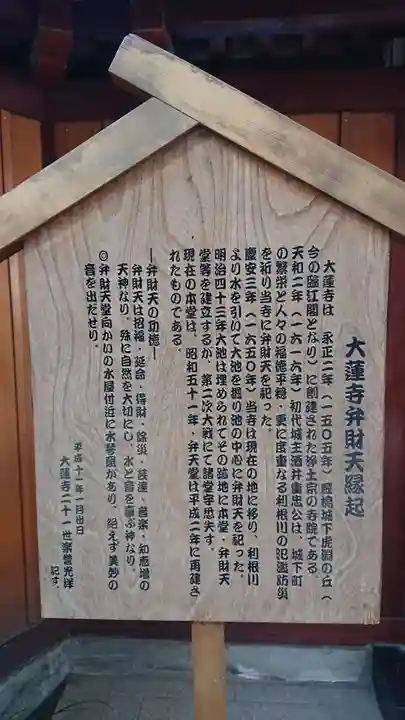 大蓮寺弁財天縁起
大蓮寺は 永正二年(一五〇五年)厩橋城下虎淵の丘(
今の臨江閣となり)に創建された浄土宗の寺院である
天和二年(一六一六年)初代城主酒井重忠公は、城下町
の繁栄と人々の福徳平穏・更に度重なる利根川の氾濫防災
を祈り当寺に弁財天を祀った。
慶安三年(一六五〇年)当寺は現在の地に移り、利根川
より水を引いて大池を掘り池の中心に弁財天を祀った。
明治四十三年大池は埋められてその跡地に本堂・弁財天
堂等を建立するが、第二次大戦にて諸堂宇悉失す。
現在の本堂は、昭和五十一年・弁天堂は平成二年に再建さ
れたものである。
―弁財天の功徳―
弁財天は招福・延命・得財・除災・技芸・音楽・知恵増の
天神なり。殊に自然を大切にし、水と音を喜ぶ神なり。
◎弁財天堂向かいの水屋付近に水琴窟があり、絶えず美妙の
音を出だせり。
平成十一年一月吉日
大蓮寺二十一世
光洋
記す。